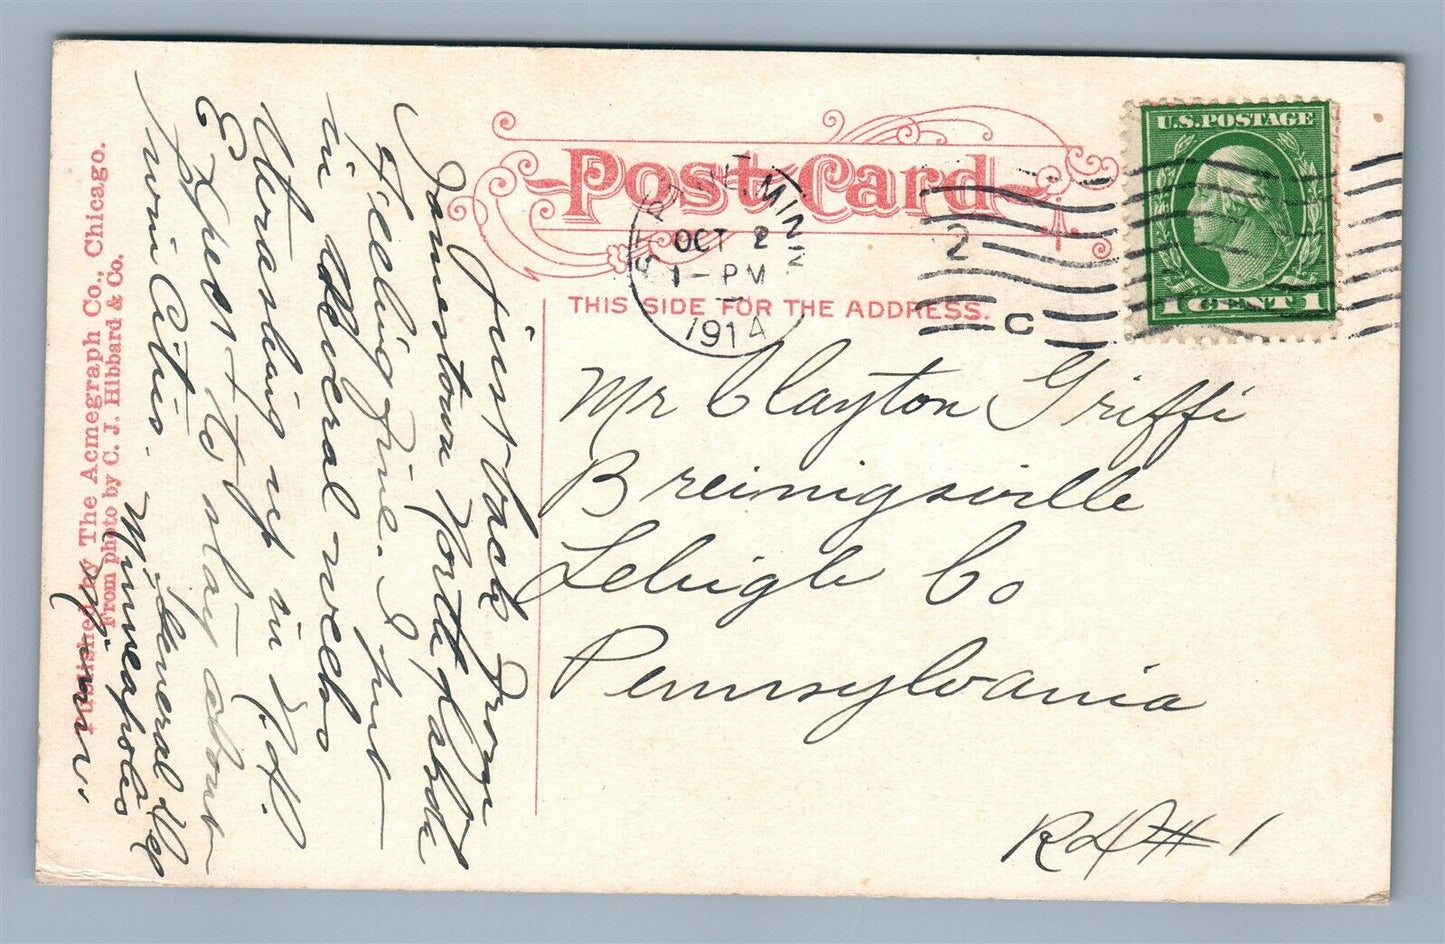 Post Card
ST. PAUL, MINN.
OCT 2
1-PM
1914
2
C
U.S. POSTAGE
1 CENT 1
THIS SIDE FOR THE ADDRESS.
Mr Clayton Griffi
Breinigsville
Lehigh Co
Pennsylvania
R D # 1
Just back from
Jamestown North Dakota
Feeling fine. I put
in several weeks
thrashing up in N. D.
Expect to stay about
Twin Cities.
General Del
Minneapolis
Minn.
Published by The Acmegraph Co., Chicago.
From photo by C. J. Hibbard & Co.